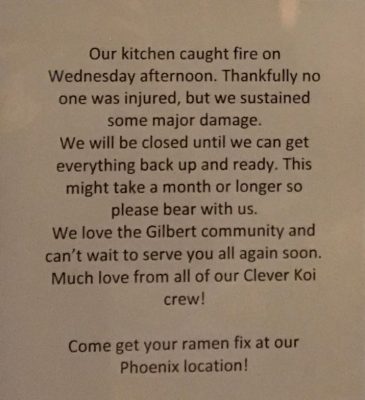 Our kitchen caught fire on
Wednesday afternoon. Thankfully no
one was injured, but we sustained
some major damage.
We will be closed until we can get
everything back up and ready. This
might take a month or longer so
please bear with us.
We love the Gilbert community and
can’t wait to serve you all again soon.
Much love from all of our Clever Koi
crew!
Come get your ramen fix at our
Phoenix location!